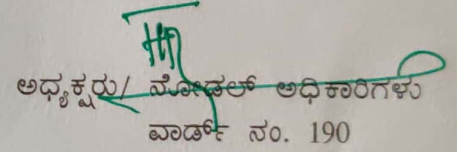 ಅಧ್ಯಕ್ಷರು/ ನೋಡಲ್ ಅಧಿಕಾರಿಗಳು
ವಾರ್ಡ್ ನಂ. 190